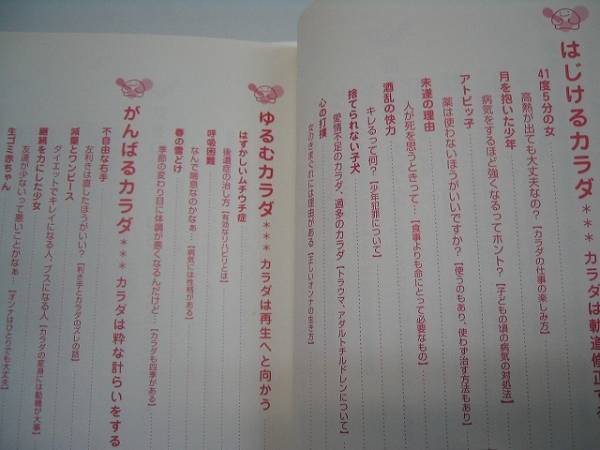 はじけるカラダ＊＊＊カラダは軌道修正する
41度5分の女
高熱が出ても大丈夫なの？［カラダの仕事の楽しみ方］
月を抱いた少年
病気をするほど強くなるってホント？［子どもの頃の病気の対処法］
アトピッ子
薬は使わないほうがいいですか？［使うのもあり、使わず治す方法もあり］
未遂の理由
人が死を思うときって…［食事よりも命にとって必要なもの］
酒乱の快力
キレるって何？［少年犯罪について］
捨てられない子犬
愛情不足のカラダ・過多のカラダ［トラウマ、アダルトチルドレンについて］
心の打撲
女のきまぐれには理由がある［正しいオンナの生き方］
ゆるむカラダ＊＊＊カラダは再生へと向かう
はずかしいムチウチ症
後遺症の治し方［有効なリハビリとは］
呼吸困難
なんで喘息なのかなぁ…［病気には性格がある］
春の雪どけ
季節の変わり目に体調が悪くなるんだけど…［カラダも四季がある］
がんばるカラダ＊＊＊カラダは粋な計らいをする
不自由な右手
左利きは直したほうがいい？［利き手とカラダのズレの話］
減量とワンピース
ダイエットでキレイになる人、ブスになる人［カラダの変身には動機が大事］
継続を力にした少女
友達が少ないって悪いことかなぁ…［オンナはひとりでも大丈夫］
生ゴミ赤ちゃん